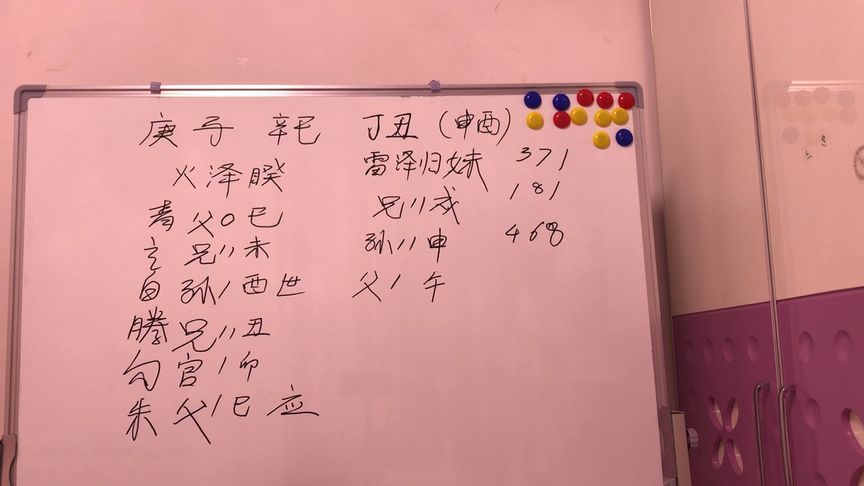 庚子 辛巳 丁丑(申酉)
火泽睽 雷泽归妹 371
青 父〇巳 兄〃戌 181
玄 兄〃未 孙〃申 468
白 孙/酉世 父/午
腾 兄〃丑
勾 官/卯
朱 父/巳 应